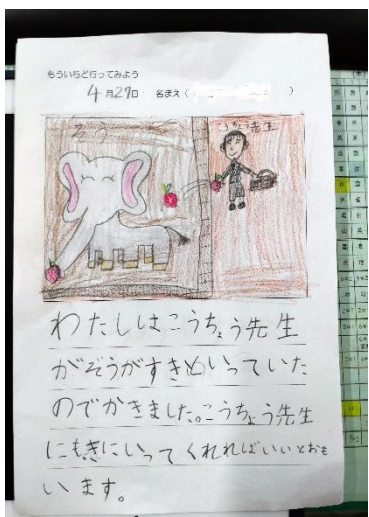 もういちど行ってみよう
4月27日 名まえ( )
ぞう
こうちょう先生
わたしはこうちょう先生
がぞうがすきといっていた
のでかきました。こうちょう先生
にもきにいってくれればいいとおも
います。